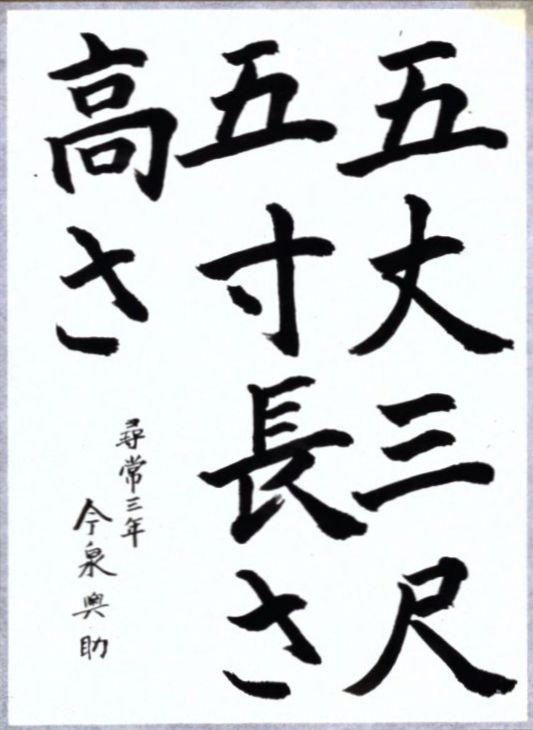 五丈三尺
五寸長さ
高さ
尋常三年
今泉興助